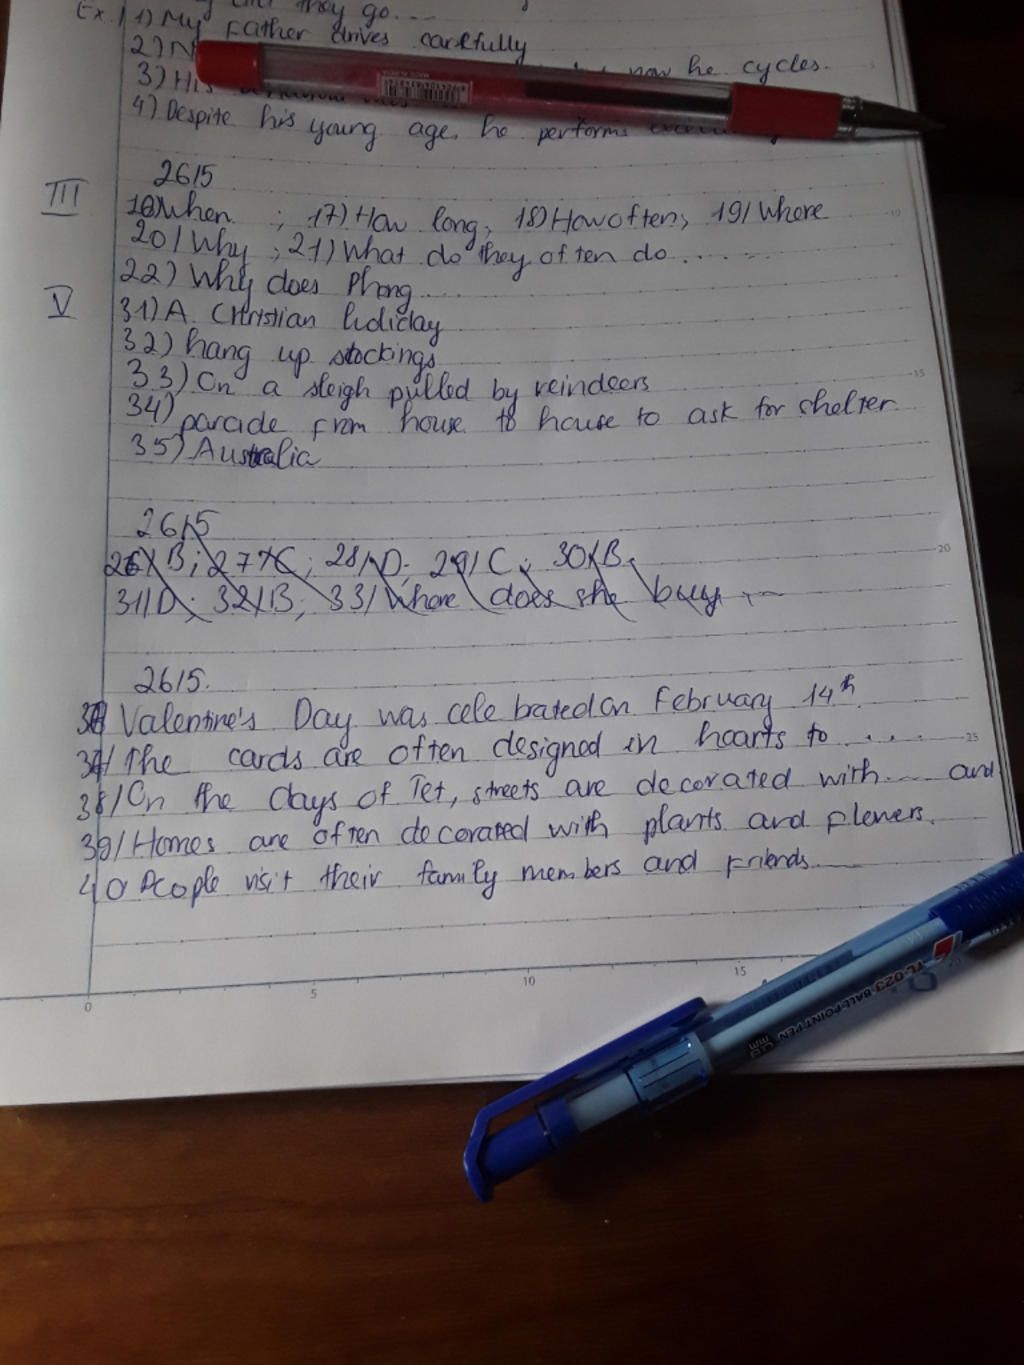 they go....
Ex.1 1) My Father drives carefully
2) now he cycles.
3) His
4) Despite his young age, he performs
2615
III when ; 17) How long, 18) How often; 19/ Where
20/ Why ; 21) What do they often do.......
22) Why does Phong....
V 31) A Christian holiday
32) hang up stockings
33) On a sleigh pulled by reindeers
34) parade from house to house to ask for shelter
35) Australia
2615
26/ B; 27/ C; 28/ D; 29/ C; 30/ B.
31/ D; 32/ B; 33/ Where does she buy ...
2615.
Valentine's Day was celebrated on February 14th.
37/ The cards are often designed in hearts to ....
38/ On the days of Tet, streets are decorated with.... and
39/ Homes are often decorated with plants and flowers.
40 People visit their family members and friends.....
0 5 10 15
10
15
20
25
TL 023 BALL POINT PEN